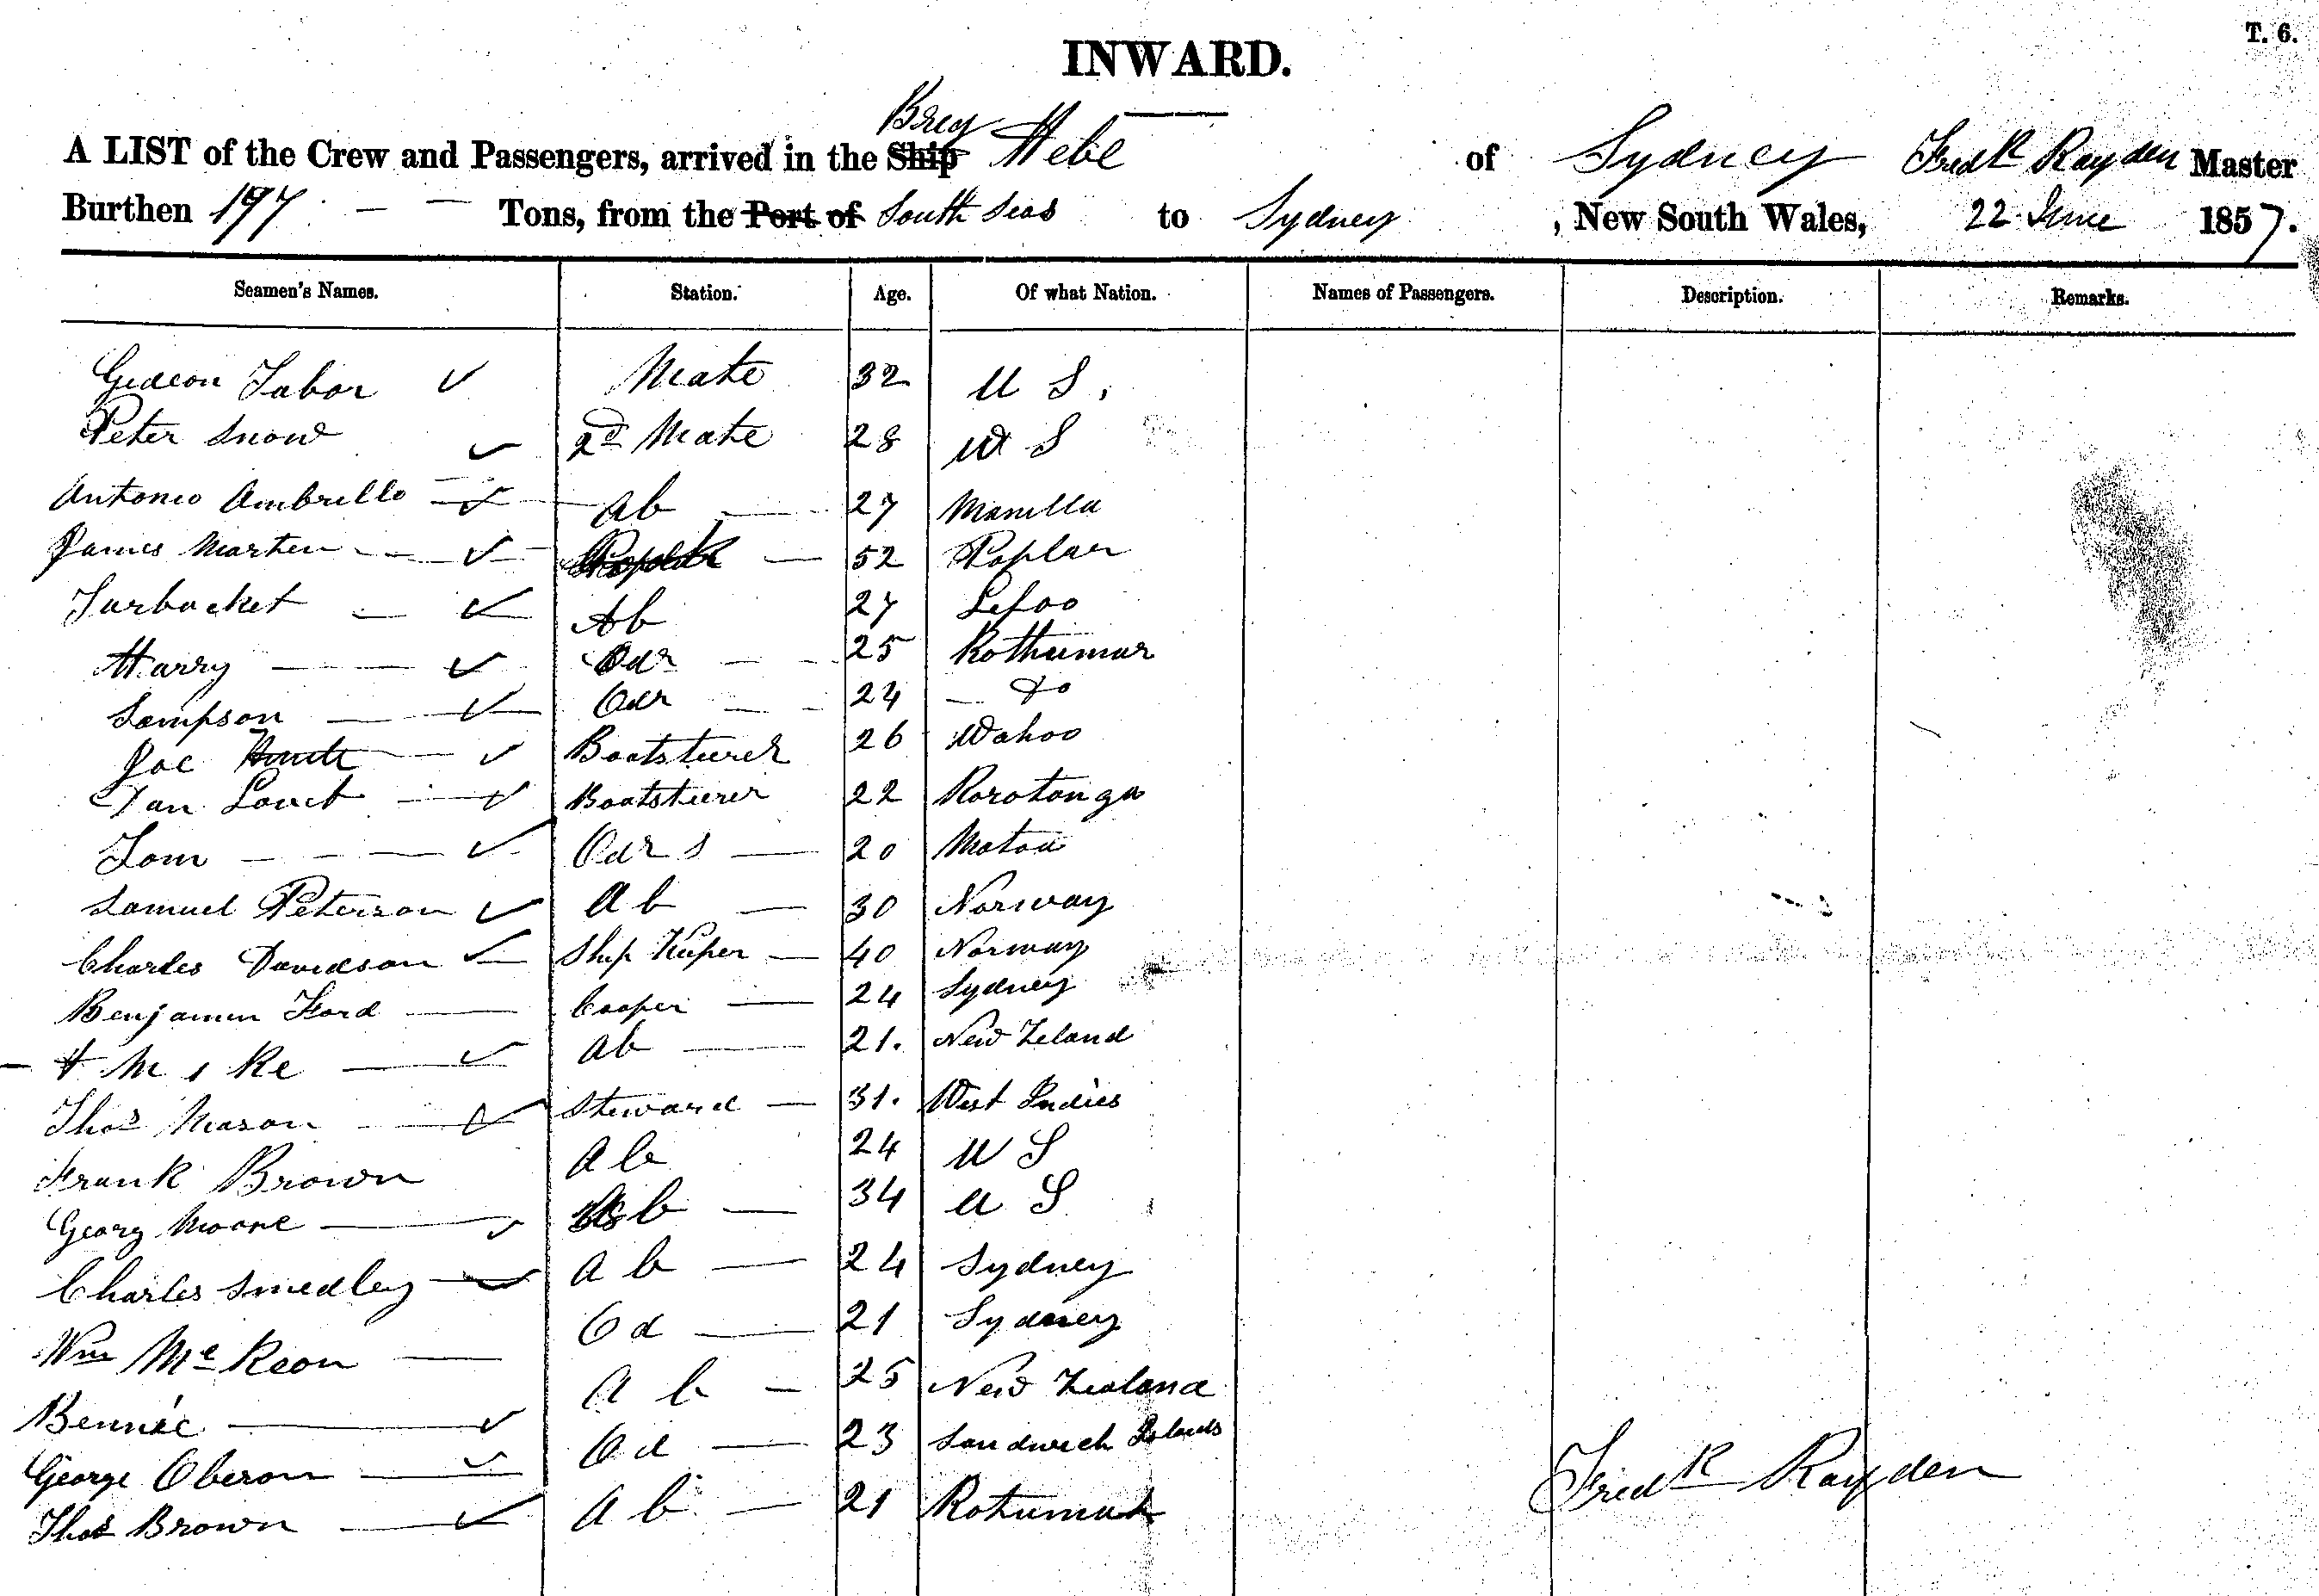 T. 6.
INWARD.
Brig
A LIST of the Crew and Passengers, arrived in the Ship Hebe of Sydney Fredk Rayden Master
Burthen 197 Tons, from the Port of South Seas to Sydney, New South Wales, 22 June 1857.
Seamen's Names. Station. Age. Of what Nation. Names of Passengers. Description. Remarks.
Gideon Tabor Mate 32 U S.
Peter Snow 2d Mate 28 U S
Antonio Ambrillo Ab 27 Manilla
James Marten 52 Poplar
Turbucket Ab 27 Lefoo
Harry Odr 25 Rothumar
Sampson Odr 24 Do
Joe Boatsteerer 26 Wahoo
Dan Boatsteerer 22 Rorotonga
Tom Odr s 20
Samuel Peterson Ab 30 Norway
Charles Davidson Ship Keper 40 Norway
Benjamin Ford Cooper 24 Sydney
Ab 21. New Zeland
Thos Mason Steward 31. West Indies
Frank Brown Ab 24 U S
Georg Moore b 34 U S
Charles Smedley Ab 24 Sydney
Wm McKeon Od 21 Sydney
Bennie Ab 25 New Zealand
George Oberon Od 23 Sandwich Islands
Thos Brown Ab 21 Rotumah
Fredk Rayden